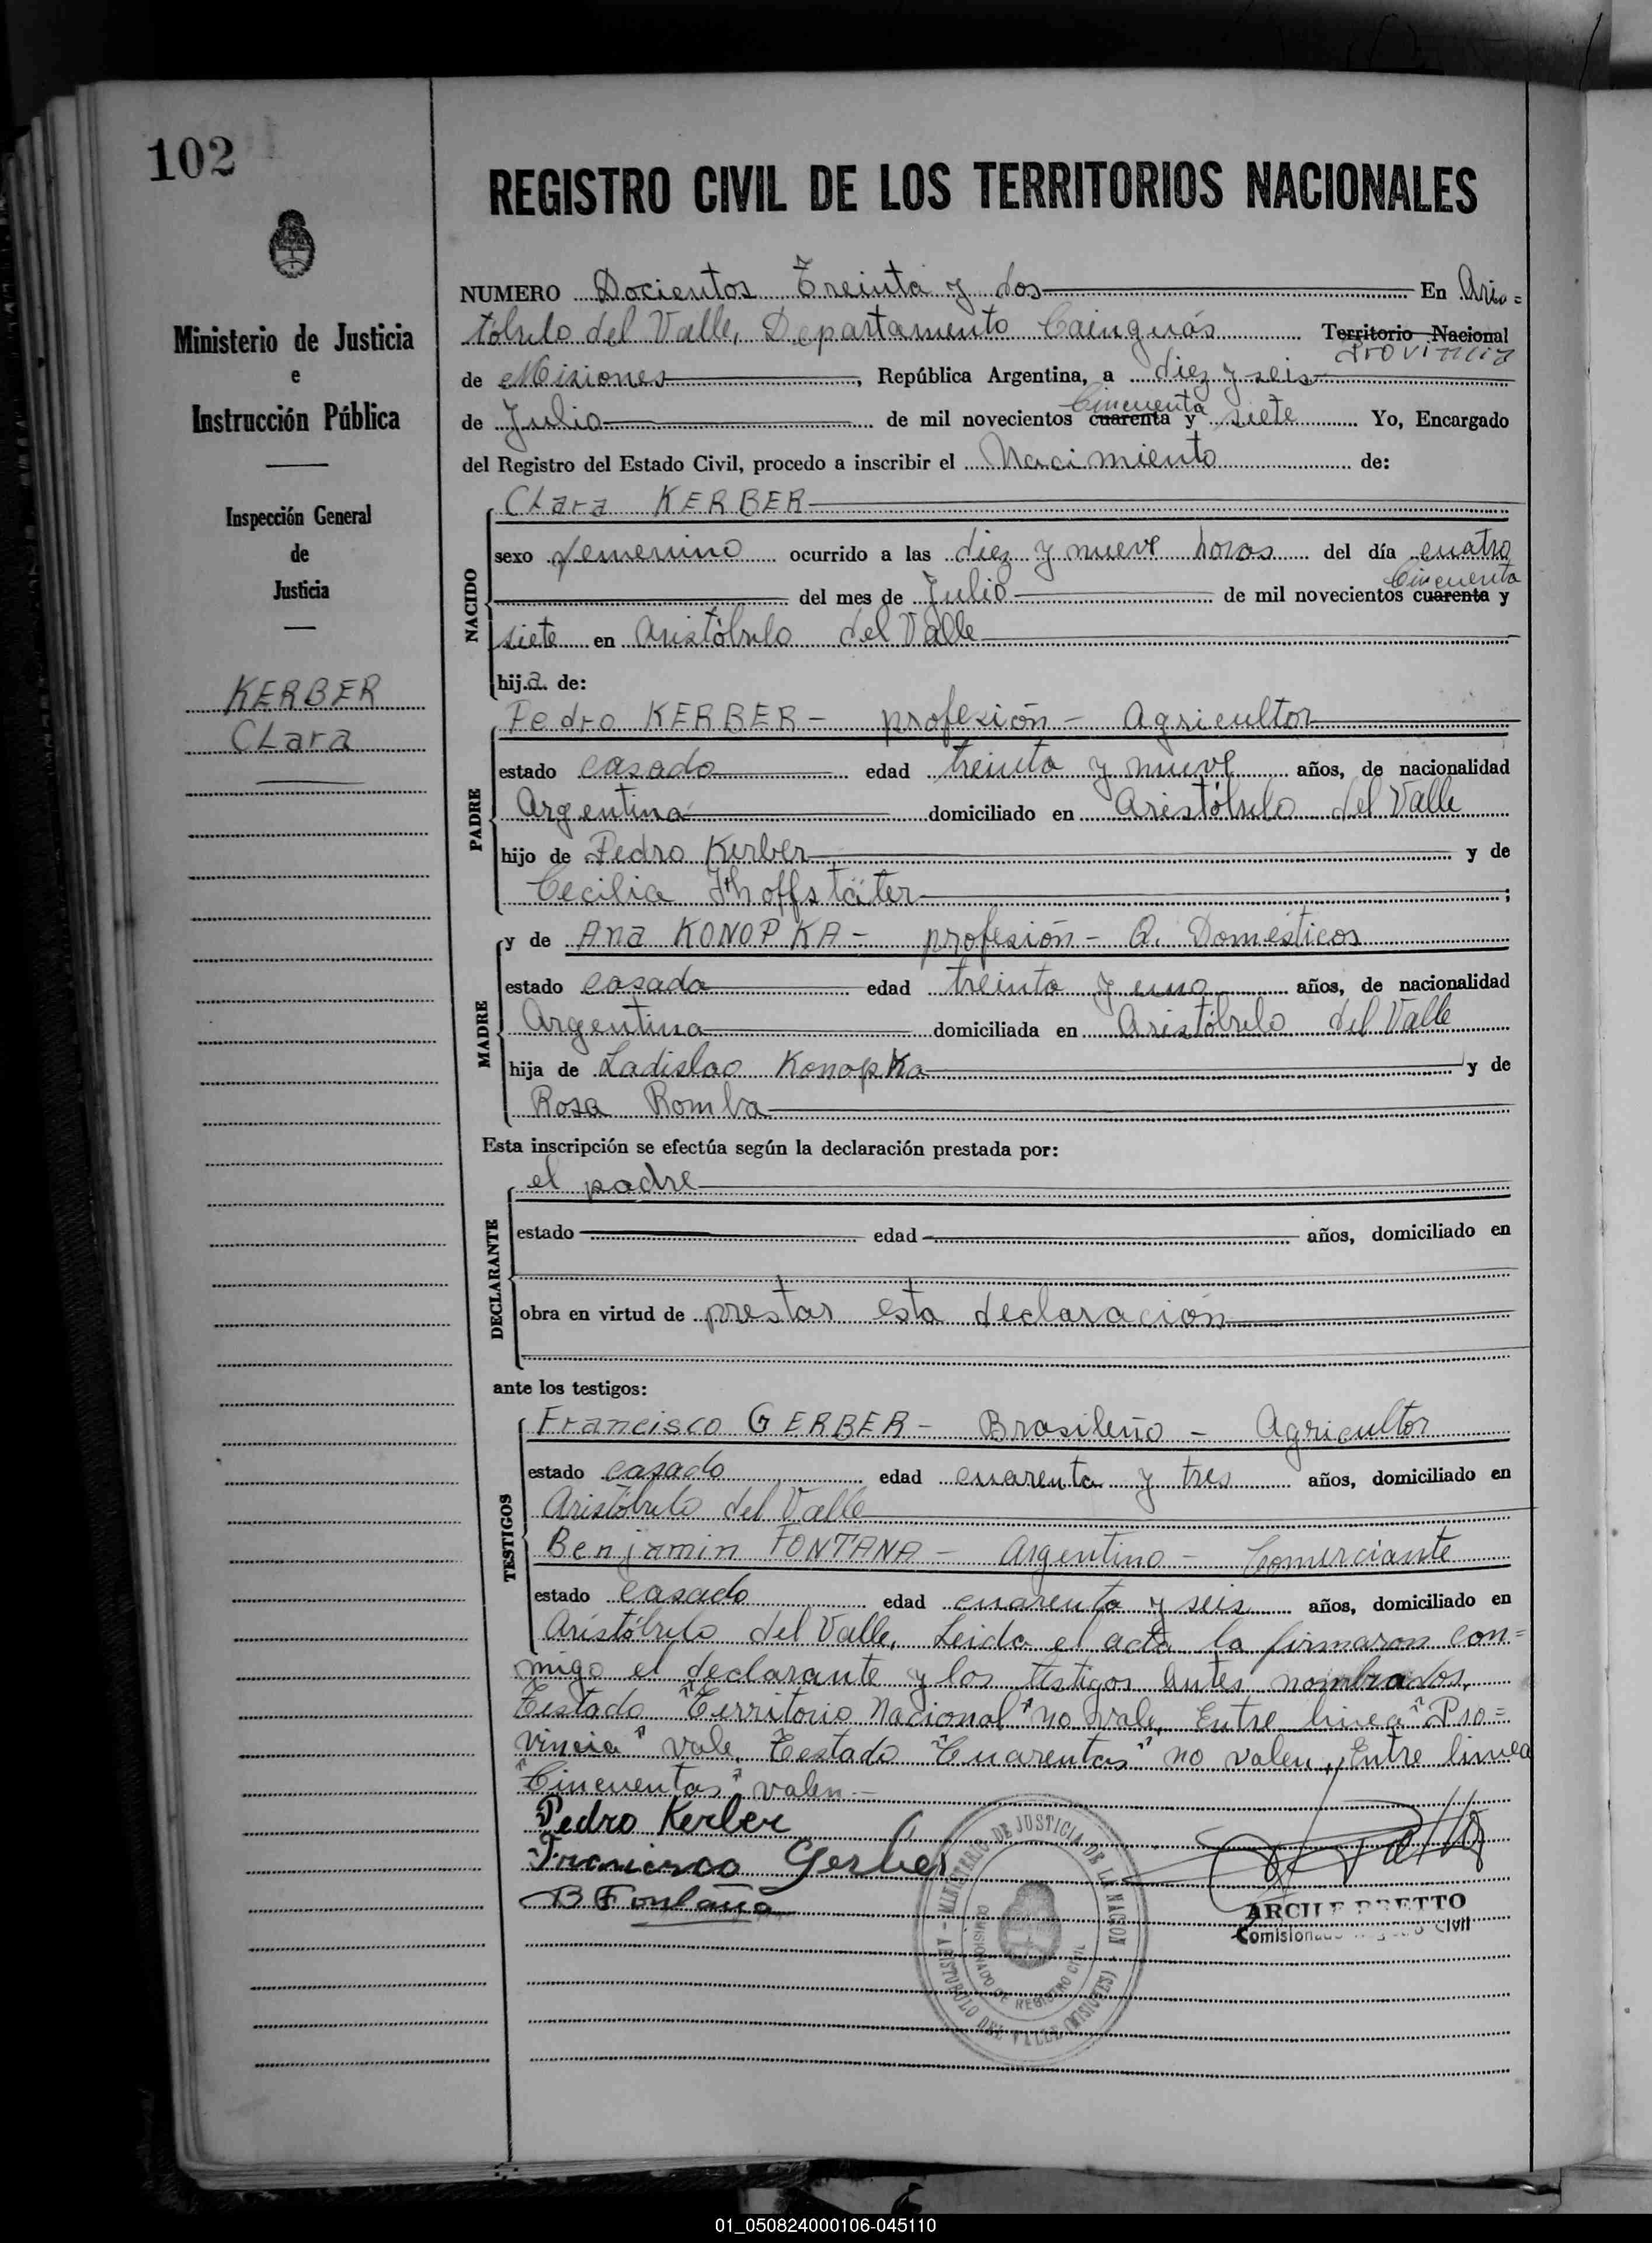 102
REGISTRO CIVIL DE LOS TERRITORIOS NACIONALES
Ministerio de Justicia
e
Instrucción Pública
Inspección General
de
Justicia
KERBER
Clara
NUMERO Docientos Treinta y dos En Aris=
tóbulo del Valle, Departamento Cainguás Territorio Nacional
Provincia
de Misiones, República Argentina, a diez y seis
Cincuenta
de Julio de mil novecientos cuarenta y siete Yo, Encargado
del Registro del Estado Civil, procedo a inscribir el Nacimiento de:
NACIDO
Clara KERBER
sexo femenino ocurrido a las diez y nueve horas del día cuatro
Cincuenta
del mes de Julio de mil novecientos cuarenta y
siete en Aristóbulo del Valle
hija de:
PADRE
Pedro KERBER - profesión - Agricultor
estado casado edad treinta y nueve años, de nacionalidad
Argentina domiciliado en Aristóbulo del Valle
hijo de Pedro Kerber y de
Cecilia Hhoffstäter;
MADRE
y de Ana KONOPKA - profesión - Q. Domésticos
estado casada edad treinta y uno años, de nacionalidad
Argentina domiciliada en Aristóbulo del Valle
hija de Ladislao Konopka y de
Rosa Romba
Esta inscripción se efectúa según la declaración prestada por:
DECLARANTE
el padre
estado edad años, domiciliado en
obra en virtud de prestar esta declaración
ante los testigos:
TESTIGOS
Francisco GERBER - Brasileño - Agricultor
estado casado edad cuarenta y tres años, domiciliado en
Aristóbulo del Valle
Benjamin FONTANA - Argentino - Comerciante
estado casado edad cuarenta y seis años, domiciliado en
Aristóbulo del Valle, Leida el acta la firmaron con=
migo el declarante y los testigos antes nombrados,
Testado "Territorio Nacional" no vale, Entre linea "Pro=
vincia" vale, Testado "Cuarentas" no valen, Entre linea
"Cincuentas" valen.-
Pedro Kerber
Francisco Gerber
B Fontana
MINISTERIO DE JUSTICIA DE LA NACION
COMISIONADO DE REGISTRO CIVIL
ARISTOBULO DEL VALLE (MISIONES)
ARCILE PRETTO
Comisionado Registro Civil
01_050824000106-045110